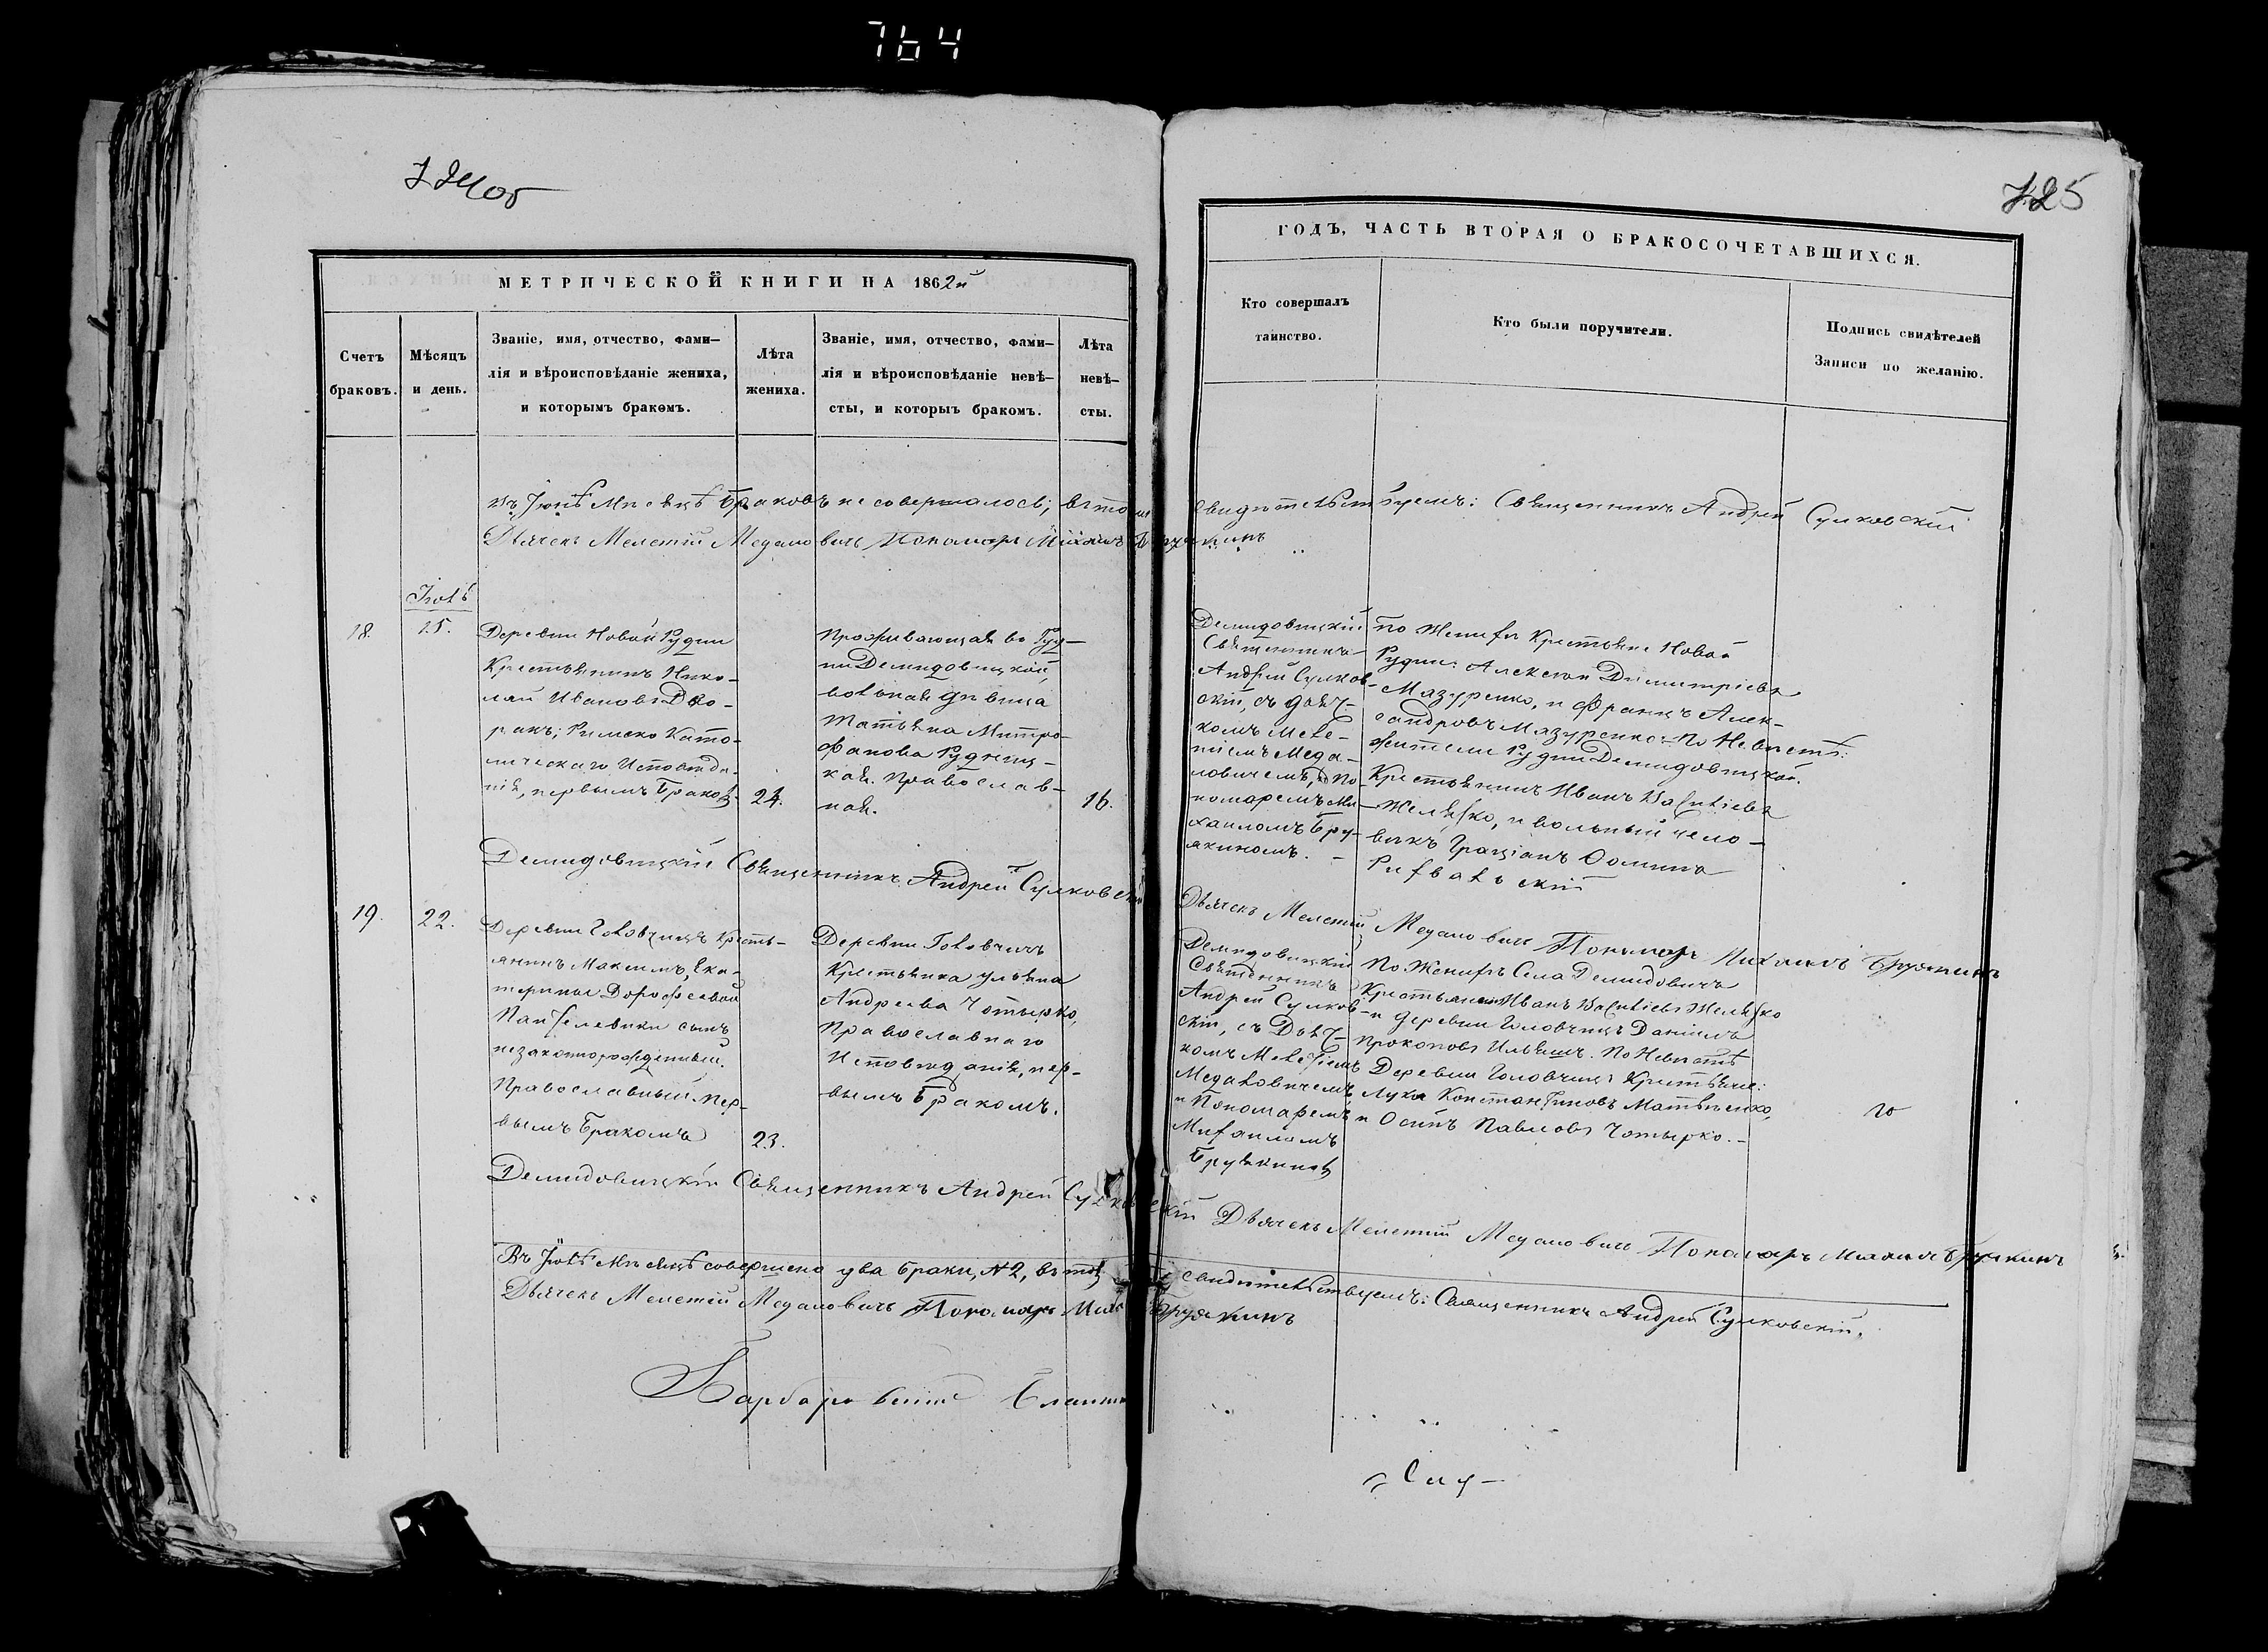 764
724об
725
МЕТРИЧЕСКОЙ КНИГИ НА 1862й
ГОДЪ, ЧАСТЬ ВТОРАЯ О БРАКОСОЧЕТАВШИХСЯ.
Счетъ
браковъ.
Мѣсяцъ
и день.
Званіе, имя, отчество, фами-
лія и вѣроисповѣданіе жениха,
и которымъ бракомъ.
Лѣта
жениха.
Званіе, имя, отчество, фами-
лія и вѣроисповѣданіе невѣ-
сты, и которыъ бракомъ.
Лѣта
невѣ-
сты.
Кто совершалъ
таинство.
Кто были поручители.
Подпись свидѣтелей
Записи по желанію.
въ Іюнѣ Мѣсяцѣ Браковъ не совершалось; въ томъ свидѣтельствуемъ: Священникъ Андрей Сулковскій
Дьячекъ Мелетій Медаловичъ Пономарь Михаилъ Бруякинъ
18.
Іюль
15.
Деревни Новой Рудни
Крестьянинъ Нико-
лай Ивановъ Дво-
ракъ; Римско Като-
лическаго Исповѣда-
нія, первымъ Бракомъ
24.
Проживающая въ Руд-
ни Демидовицкой,
вольная дѣвица
Татьяна Митро-
фанова Рудниц-
кая. Православ-
ная.
16.
Демидовицкій
Священникъ
Андрей Сулков-
скій, съ дьяч-
комъ Меле-
тіемъ Меда-
ловичемъ, и По-
номаремъ Ми-
хаиломъ Бру-
якиномъ.
По Женихѣ Крестьяне Новой
Рудни: Алексѣй Димитріевъ
Мазуренко, и Францъ Алек-
сандровъ Мазуренко. По Невѣстѣ:
жители Рудни Демидовицкой.
Крестьянинъ Иванъ Васильевъ
Желѣзко, и вольный чело-
вѣкъ Граціанъ Фоминъ
Ризвальскій
Демидовицкій Священникъ Андрей Сулковскій
Дьячекъ Мелетій Медаловичъ Пономарь Михаилъ Бруякинъ
19.
22.
Деревни Головчицъ Кресть-
янинъ Максимъ, Ека-
терины Дорофеевой
сынъ
незаконнорожденный.
Православный, пер-
вымъ Бракомъ
23.
Деревни Головчицъ
Крестьянка Ульяна
Андреева Чотырко,
Православнаго
Исповѣданія, пер-
вымъ Бракомъ.
Демидовицкій
Священникъ
Андрей Сулков-
скій, съ Дьяч-
комъ Мелетіемъ
Медаловичемъ
и Пономаремъ
Михаиломъ
Бруякинымъ
По Женихѣ Села Демидовичъ
Крестьянинъ Иванъ Васильевъ Желѣзко
и деревни Головчицъ Даніилъ
Прокоповъ Ильяшъ. По Невѣстѣ
Деревни Головчицъ Крестьяне:
Лука Константиновъ Матвѣенко,
и Осипъ Павловъ Чотырко.
Демидовицкій Священникъ Андрей Сулковскій Дьячекъ Мелетій Медаловичъ Пономарь Михаилъ Бруякинъ
Въ Іюлѣ Мѣсяцѣ совершено два Брака, №2, въ томъ свидѣтельствуемъ: Священникъ Андрей Сулковскій.
Дьячекъ Мелетій Медаловичъ Пономарь Мих Бруякинъ